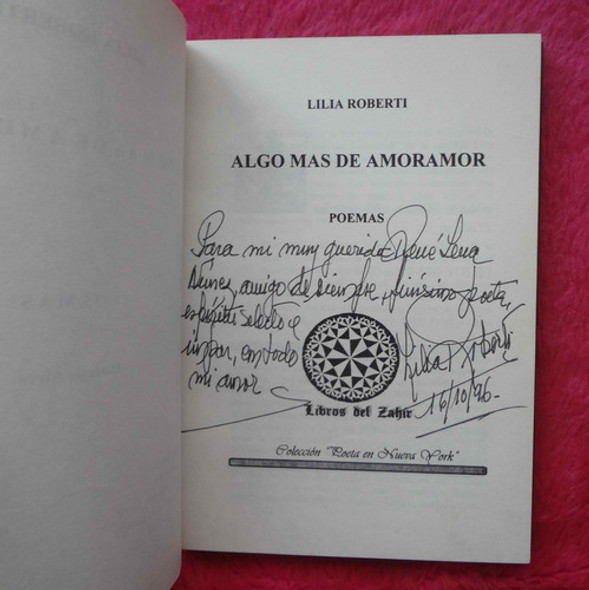 LILIA ROBERTI
ALGO MAS DE AMORAMOR
POEMAS
Para mi muy querido René Lena
Núnez, amigo de siempre, finísimo poeta,
espíritu selecto e
impar, con todo
mi amor
Lilia Roberti
16/10/96-
Libros del Zahir
Colección "Poeta en Nueva York"